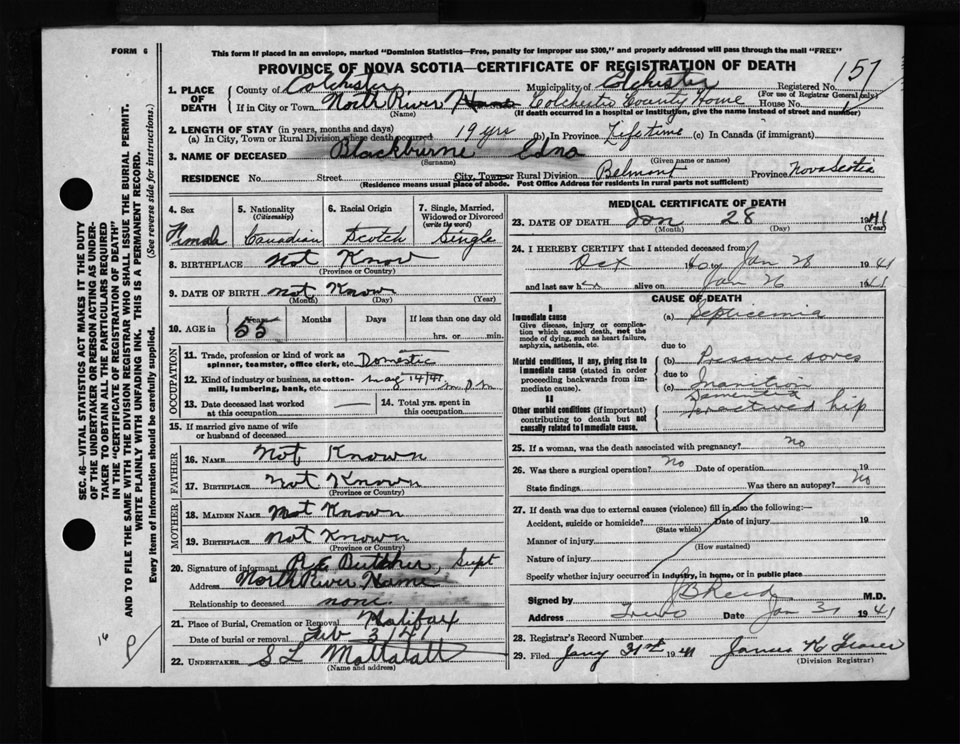 FORM 6
This form if placed in an envelope, marked "Dominion Statistics—Free, penalty for improper use $300," and properly addressed will pass through the mail "FREE"
PROVINCE OF NOVA SCOTIA—CERTIFICATE OF REGISTRATION OF DEATH
157
1. PLACE OF DEATH
County of Colchester Municipality of Colchester Registered No.
(For use of Registrar General only)
If in City or Town North River Colchester County Home House No.
(Name) (If death occurred in a hospital or institution, give the name instead of street and number)
2. LENGTH OF STAY (in years, months and days)
(a) In City, Town or Rural Division where death occurred 19 yrs (b) In Province Lifetime (c) In Canada (if immigrant)
3. NAME OF DECEASED Blackburne Edna
(Surname) (Given name or names)
RESIDENCE No. Street City, Town or Rural Division Belmont Province Nova Scotia
(Residence means usual place of abode. Post Office Address for residents in rural parts not sufficient)
4. Sex 5. Nationality 6. Racial Origin 7. Single, Married, Widowed or Divorced
(Citizenship) (write the word)
Female Canadian Scotch Single
8. BIRTHPLACE Not Know
(Province or Country)
9. DATE OF BIRTH Not Known
(Month) (Day) (Year)
10. AGE in Years Months Days If less than one day old
55 hrs. or min.
OCCUPATION
11. Trade, profession or kind of work as spinner, teamster, office clerk, etc. Domestic
12. Kind of industry or business, as cotton-mill, lumbering, bank, etc.
13. Date deceased last worked at this occupation
14. Total yrs. spent in this occupation
15. If married give name of wife or husband of deceased
FATHER
16. NAME Not Known
17. BIRTHPLACE Not Known
(Province or Country)
MOTHER
18. MAIDEN NAME Not Known
19. BIRTHPLACE Not Known
(Province or Country)
20. Signature of informant R E Butcher, Supt
Address North River Home
Relationship to deceased none
21. Place of Burial, Cremation or Removal Halifax
Date of burial or removal Feb 3/41
22. UNDERTAKER S L Mattatall
(Name and address)
MEDICAL CERTIFICATE OF DEATH
23. DATE OF DEATH Jan 28 1941
(Month) (Day) (Year)
24. I HEREBY CERTIFY that I attended deceased from
Oct 40 to Jan 28 1941
and last saw her alive on Jan 26 1941
CAUSE OF DEATH
I
Immediate cause
Give disease, injury or complication which caused death, not the mode of dying, such as heart failure, asphyxia, asthenia, etc.
(a) Septicemia
due to
Morbid conditions, if any, giving rise to immediate cause (stated in order proceeding backwards from immediate cause).
(b) Pressive sores
due to
(c) Inanition
II
Other morbid conditions (if important) contributing to death but not causally related to immediate cause.
fractured hip
25. If a woman, was the death associated with pregnancy? No
26. Was there a surgical operation? No Date of operation 19
State findings Was there an autopsy? No
27. If death was due to external causes (violence) fill in also the following:—
Accident, suicide or homicide? Date of injury 19
(State which)
Manner of injury
(How sustained)
Nature of injury
Specify whether injury occurred in industry, in home, or in public place
Signed by J B Reed M.D.
Address Truro Date Jan 31 1941
28. Registrar's Record Number
29. Filed Jany 31st 1941 James K
(Division Registrar)
SEC. 46—VITAL STATISTICS ACT MAKES IT THE DUTY
OF THE UNDERTAKER OR PERSON ACTING AS UNDER-
TAKER TO OBTAIN ALL THE PARTICULARS REQUIRED
IN THE "CERTIFICATE OF REGISTRATION OF DEATH"
AND TO FILE THE SAME WITH THE DIVISION REGISTRAR WHO SHALL ISSUE THE BURIAL PERMIT.
WRITE PLAINLY WITH UNFADING INK. THIS IS A PERMANENT RECORD.
Every item of information should be carefully supplied. (See reverse side for instructions.)
16